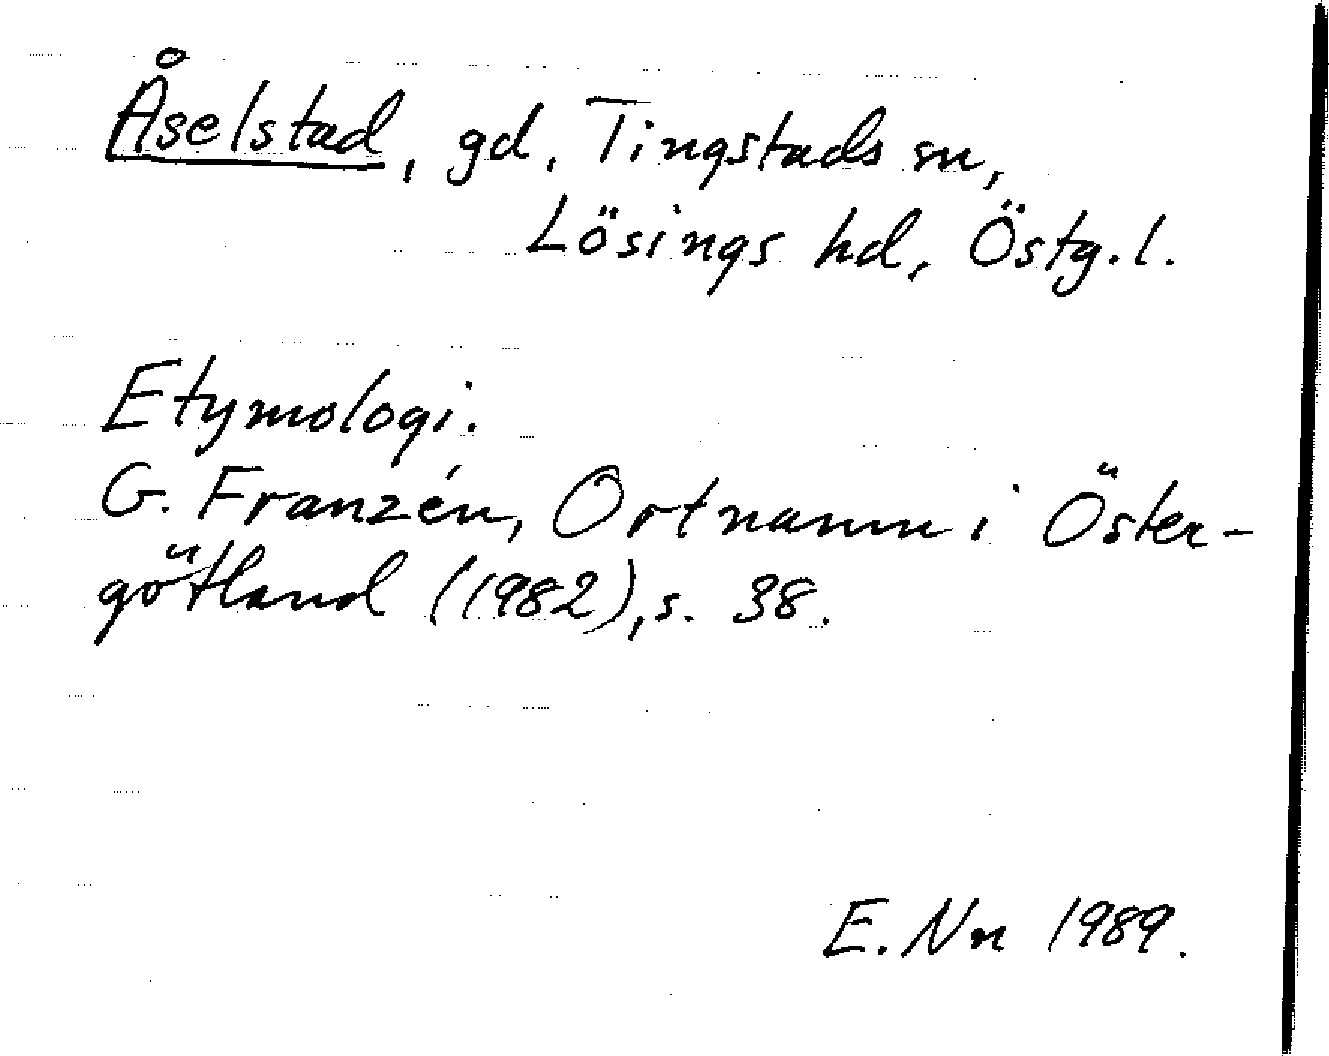 Åselstad, gd, Tingstads sn,
Lösings hd, Östg.l.
Etymologi.
G. Franzén, Ortnamn i Öster-
götland (1982), s. 38.
E. Nn 1989.